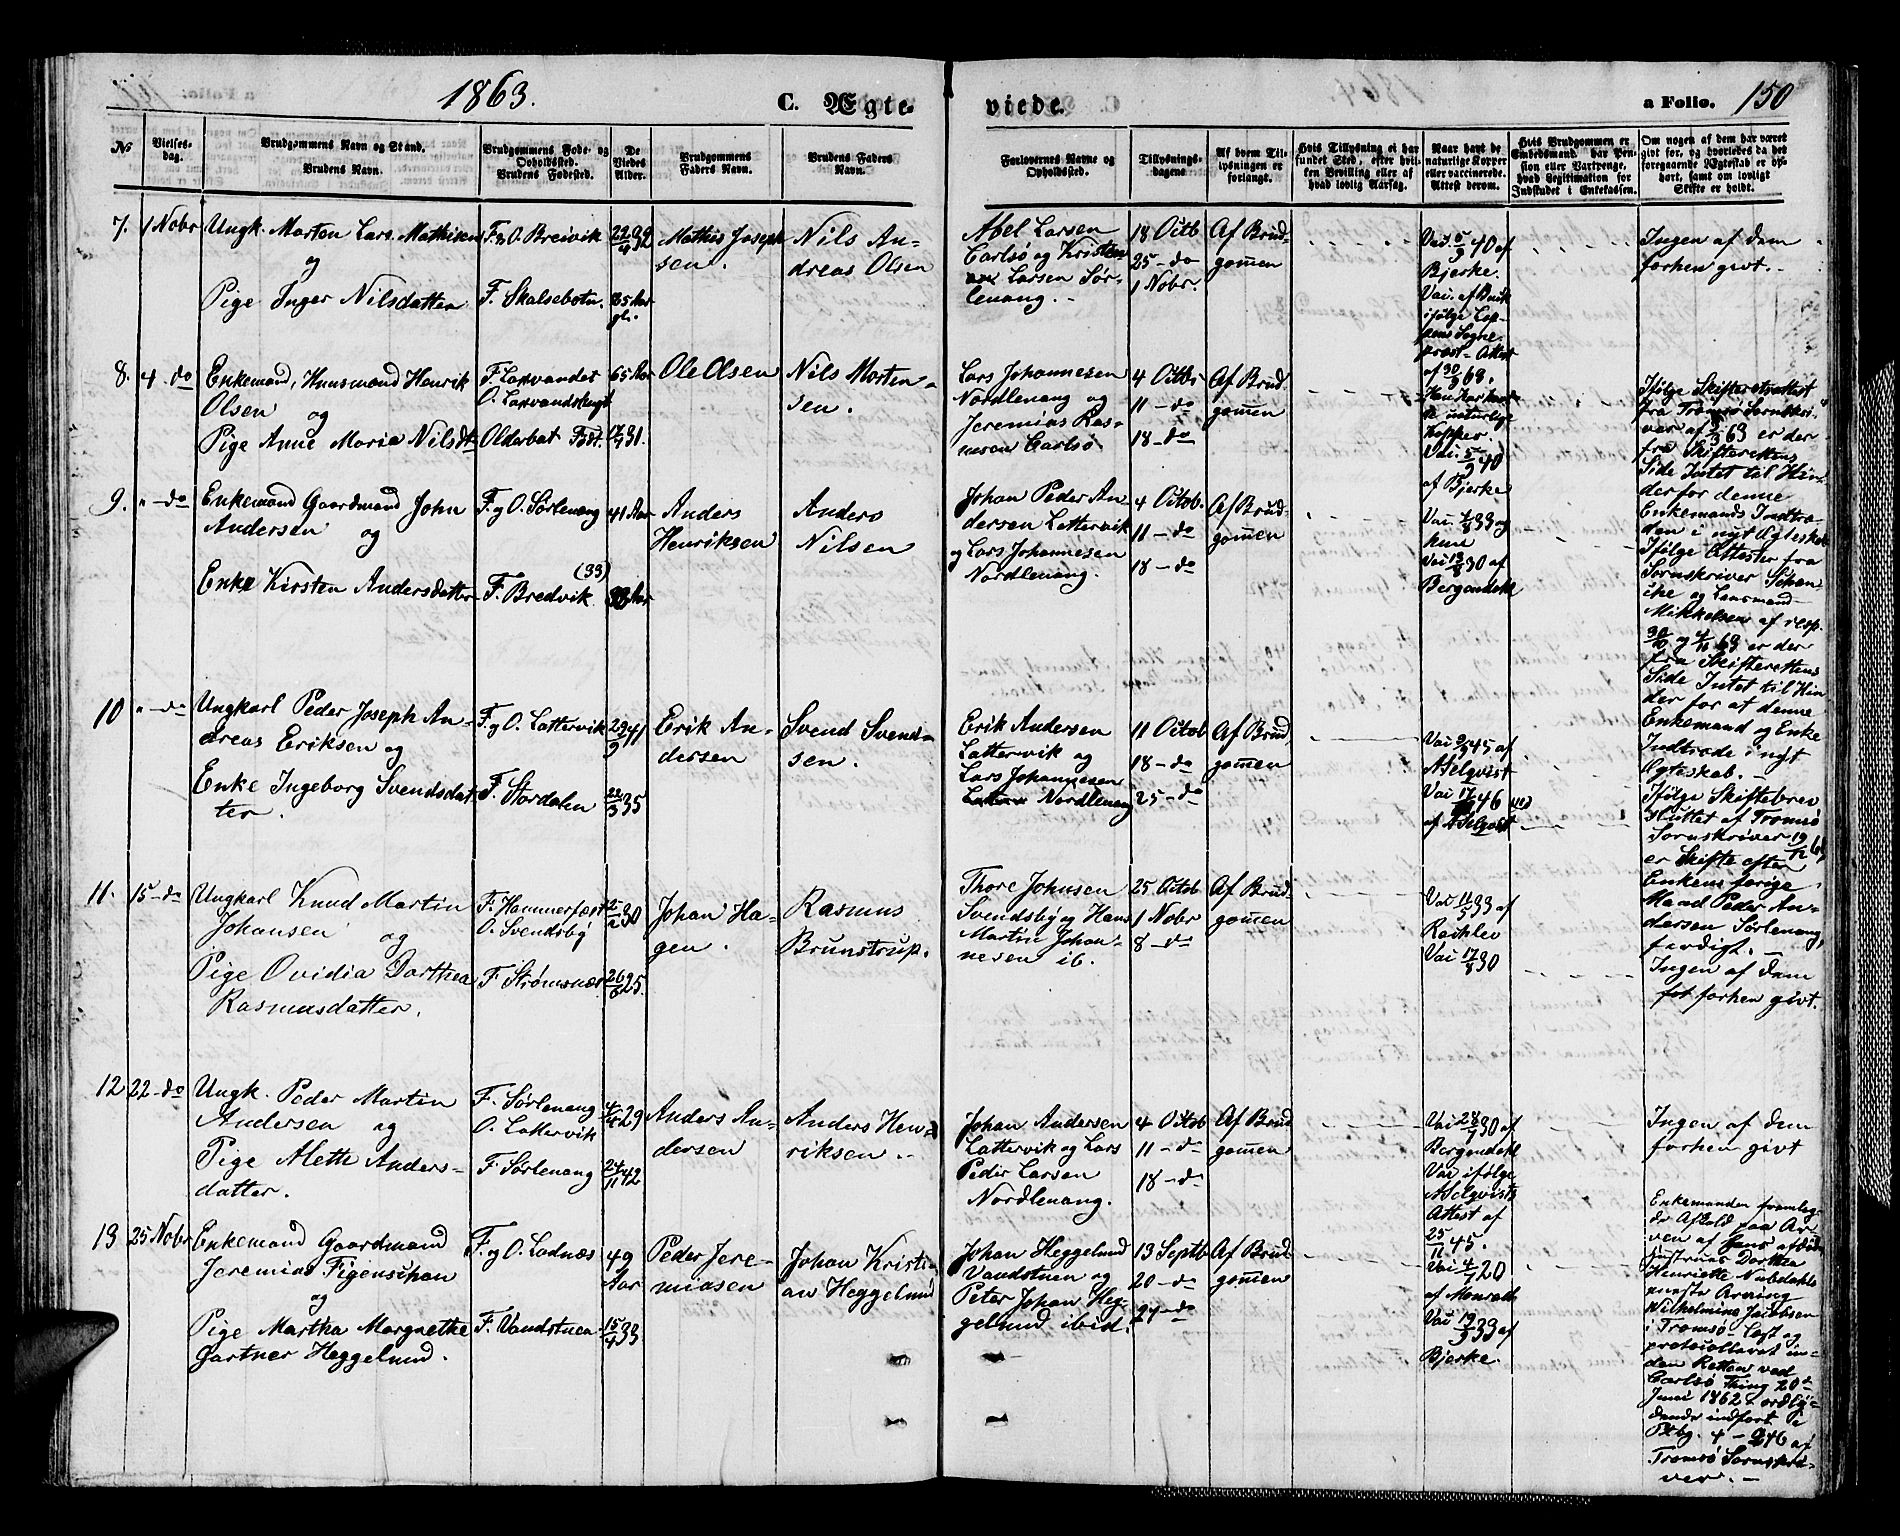 1863.
C. Ægte
viede.
a Folio. 150
№
Vielses-
dag.
Brudgommens Navn og Stand.
Brudens Navn.
Brudgommens Føde- og
Opholdsted.
Brudens Fødested.
De
Viedes
Alder.
Brudgommens
Faders Navn.
Brudens Faders
Navn.
Forlovernes Navne og
Opholdsted.
Tillysnings-
dagene.
Af hvem Til-
lysningen er
forlangt.
Hvis Tillysning ei har
fundet Sted, efter hvil-
ken Bevilling eller af
hvad lovlig Aarsag.
Naar havt de
naturlige Kopper
eller vaccinerede.
Attest derom.
Hvis Brudgommen er
Embedsmand, har Pen-
sion eller Vartpenge,
hvad Legitimation for
Indskudet i Enkekassen.
Om nogen af dem har været
givt før, og hvorledes da det
foregaaende Ægteskab er op-
hørt, samt om lovligt
Skifte er holdt.
7. 1 Nobr Ungk. Morten Lars. Mathisen
og
Pige Inger Nilsdatter
F. & O. Breivik
F. Skalsebotn.
22/4 32
35 Aar
gl.
Mathis Joseph
sen.
Nils An-
dreas Olsen
Abel Larsen
Carlsø og Kristen
Larsen Sør-
lenang.
18 Octb
25 - do
1 Nobr.
Af Brud-
gommen
Vai. 5/9 40 af
Bjerke.
Vai. af Buck
ifølge Lop-
pens Sogne
præst - Attest
af 30/9 63.
Ingen af dem
forhen givt.
8. 4 - do Enkemand, Huusmand Henrik
Olsen og
Pige Anne Maria Nilsdt
F. Laxvandet
O. Laxvandsbugt
Olderbat Fdt.
65 Aar
17/7 31.
Ole Olsen
Nils Morten-
sen.
Lars Johannesen
Nordlenang og
Jeremias Ras-
musen Carlsø
4 Octbr
11 - do
18 - do
Af Brud
gommen
Han har hav-
de naturlige
Kopper.
Vai. 5/9 40
af Bjerke
Ifølge Skifteretsattest
fra Tromsø Sornskri-
ver af 3/3 63 er der
fra Skifterettens
Side Intet til Hin-
der for denne
Enkemands Indtræ-
den i nyt Ægteskab
9. " - do Enkemand Gaardmand John
Andersen og
Enke Kirsten Andersdatter
F. og O. Sørlenang
F. Bredvik
41 Aar
(33)
33 Aar
Anders
Henriksen
Anders
Nilsen
Johan Peder An-
dersen Lattervik
og Lars Johannesen
Nordlenang.
4 Octob.
11 - do
18 - do
Af Brud-
gommen
Vai. 1/8 33 og
Vai 13/8 30 af
Bergendahl
Ifølge Attester fra
Sornskriver Schan-
ike og Lensmand
Mikkelsen af resp.
30/10 og 4/11 63 er der
fra Skifterettens
Side Intet til Hin
der for at denne
Enkemand og Enke
Indtræde i nyt
Ægteskab. -
10 " - do Ungkarl Peder Joseph An-
dreas Eriksen og
Enke Ingeborg Svendsdat
ter.
F. og O. Lattervik
F. Stordalen
29/9 41
22/3 35
Erik An-
dersen
Svend Svend-
sen.
Erik Andersen
Lattervik og
Lars Johannesen
Nordlenang
11 Octob
18 - do
25 - do
Af Brud
gommen
Vai 9/9 45 af
Aselqvist
Vai 17/ 46
af Aselqvist
Ifølge Skiftebrev
sluttet af Tromsø
Sornskriver 19/12 6
er Skifte efter
Enkens forige
Mand Peder An-
dersen Sørlenang,
færdigt. -
11. 15 - do Ungkarl Knud Martin
Johansen og
Pige Ovidia Dorthea
Rasmusdatter.
F. Hammerfest
O. Svendsby
F Strømsnæs
25/2 30
26/8 25.
Johan Ha-
gen.
Rasmus
Brunstrup.
Thore Johnsen
Svendsby og Hans
Martin Johan-
nesen ib.
25. Octob
1 Nobr
8 - do
Af Brud-
gommen
Vai 11/5 33 af
Raschlev
Vai 17/8 30
Ingen af dem
forhen givt.
12 22 - do Ungk. Peder Martin
Andersen og
Pige Aleth Anders-
datter.
F. Sørlenang
O. Lattervik
F. Sørlenang
4/4 29
24/11 42
Anders An-
dersen
Anders Hen-
riksen.
Johan Andersen
Lattervik og Lars
Peder Larsen
Nordlenang.
4 Octob
11 - do
18 - do
Af Brud
gommen
Vai 28/7 30 af
Bergendahl
Vai ifølge
Aselqvists
Attest af
25/11 45.
Ingen af dem
forhen givt
13 25 Nobr Enkemand Gaardmand
Jeremias Figenschau
og
Pige Martha Margrethe
Gartner Heggelund.
F. og O. Ladnæs
F. Vandstuen
49
Aar
15/4 33
Peder Jere-
miasen
Johan Kristi-
an Heggelund
Johan Heggelund
Vandstuen og
Peter Johan Heg-
gelund ibid.
13 Septb
20 - do
27 - do
Af Brud-
gommen
Vai 4/7 20
af Monrath
Vai 19/9 33 af
Bjerke.
Enkemanden fremlæg-
de Afkald paa Ar-
ven af Hans afdøde
Hustrues Dorthea
Henriette Nubdahls
eneste Arving
Wilhelmina Jacobsen
i Tromsø - Læst og
protocolleret in-
den Retten ved
Carlsø Thing 20de
Juni 1862 & ordly-
dende indført i
Ptbg. 4 - 246 af
Tromsø Sornskri-
ver. -